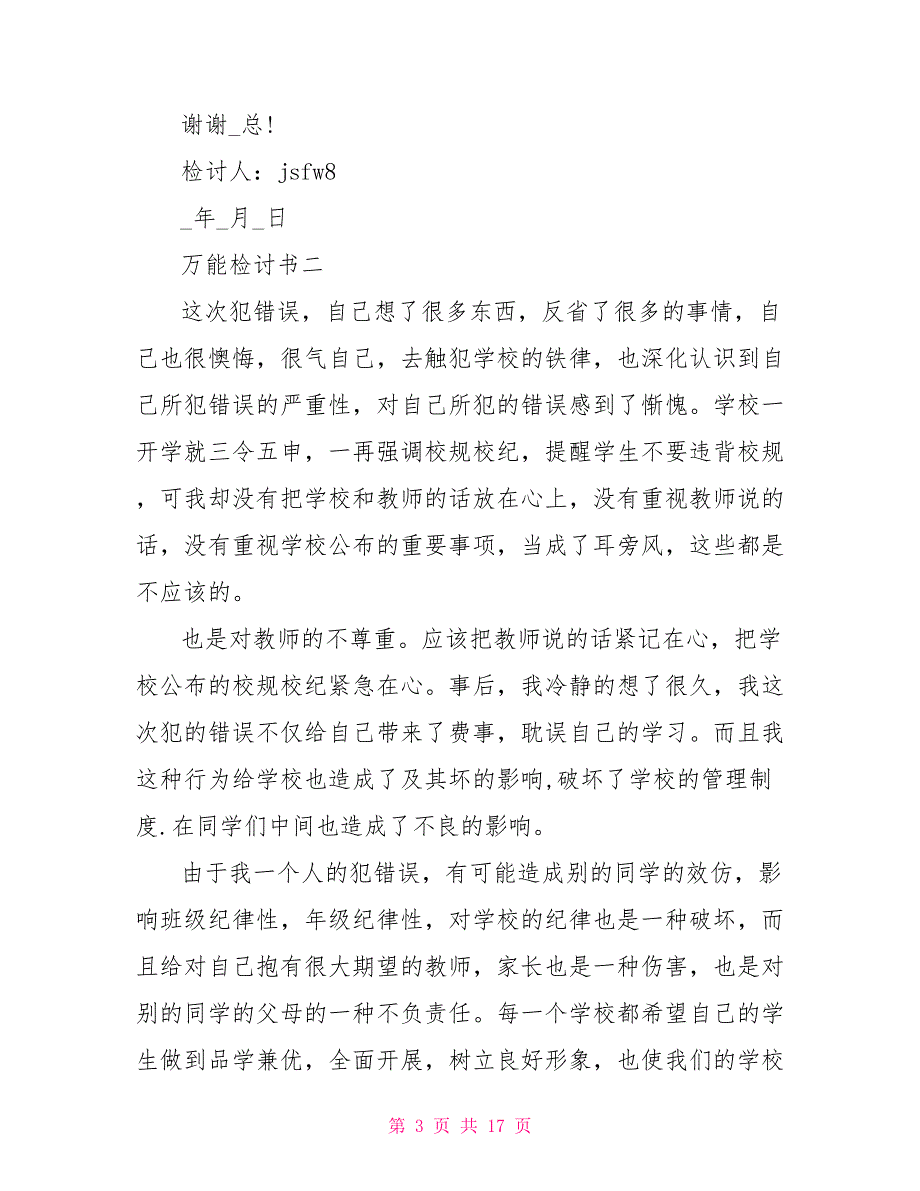 谢谢_总!
检讨人：jsfw8
_年_月_日
万能检讨书二
这次犯错误，自己想了很多东西，反省了很多的事情，自
己也很懊悔，很气自己，去触犯学校的铁律，也深化认识到自
己所犯错误的严重性，对自己所犯的错误感到了惭愧。学校一
开学就三令五申，一再强调校规校纪，提醒学生不要违背校规
，可我却没有把学校和教师的话放在心上，没有重视教师说的
话，没有重视学校公布的重要事项，当成了耳旁风，这些都是
不应该的。
也是对教师的不尊重。应该把教师说的话紧记在心，把学
校公布的校规校纪紧急在心。事后，我冷静的想了很久，我这
次犯的错误不仅给自己带来了费事，耽误自己的学习。而且我
这种行为给学校也造成了及其坏的影响,破坏了学校的管理制
度.在同学们中间也造成了不良的影响。
由于我一个人的犯错误，有可能造成别的同学的效仿，影
响班级纪律性，年级纪律性，对学校的纪律也是一种破坏，而
且给对自己抱有很大期望的教师，家长也是一种伤害，也是对
别的同学的父母的一种不负责任。每一个学校都希望自己的学
生做到品学兼优，全面开展，树立良好形象，也使我们的学校
第 3 页 共 17 页